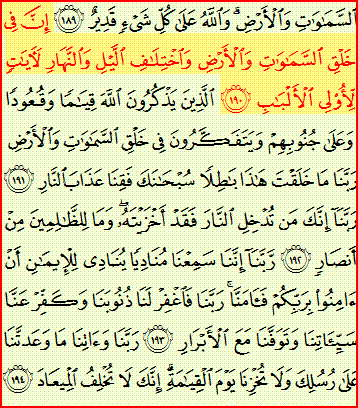 ٱلسَّمَٰوَٰتِ وَٱلْأَرْضِۗ وَٱللَّهُ عَلَىٰ كُلِّ شَىْءٍ قَدِيرٌ ١٨٩ إِنَّ فِى
خَلْقِ ٱلسَّمَٰوَٰتِ وَٱلْأَرْضِ وَٱخْتِلَٰفِ ٱلَّيْلِ وَٱلنَّهَارِ لَءَايَٰتٍ
لِّأُو۟لِى ٱلْأَلْبَٰبِ ١٩٠ ٱلَّذِينَ يَذْكُرُونَ ٱللَّهَ قِيَٰمًا وَقُعُودًا
وَعَلَىٰ جُنُوبِهِمْ وَيَتَفَكَّرُونَ فِى خَلْقِ ٱلسَّمَٰوَٰتِ وَٱلْأَرْضِ
رَبَّنَا مَا خَلَقْتَ هَٰذَا بَٰطِلًا سُبْحَٰنَكَ فَقِنَا عَذَابَ ٱلنَّارِ ١٩١
رَبَّنَآ إِنَّكَ مَن تُدْخِلِ ٱلنَّارَ فَقَدْ أَخْزَيْتَهُۥۖ وَمَا لِلظَّٰلِمِينَ مِنْ
أَنصَارٍ ١٩٢ رَّبَّنَآ إِنَّنَا سَمِعْنَا مُنَادِيًا يُنَادِى لِلْإِيمَٰنِ أَنْ
ءَامِنُوا۟ بِرَبِّكُمْ فَـَٔامَنَّاۚ رَبَّنَا فَٱغْفِرْ لَنَا ذُنُوبَنَا وَكَفِّرْ عَنَّا
سَيِّـَٔاتِنَا وَتَوَفَّنَا مَعَ ٱلْأَبْرَارِ ١٩٣ رَبَّنَا وَءَاتِنَا مَا وَعَدتَّنَا
عَلَىٰ رُسُلِكَ وَلَا تُخْزِنَا يَوْمَ ٱلْقِيَٰمَةِۗ إِنَّكَ لَا تُخْلِفُ ٱلْمِيعَادَ ١٩٤